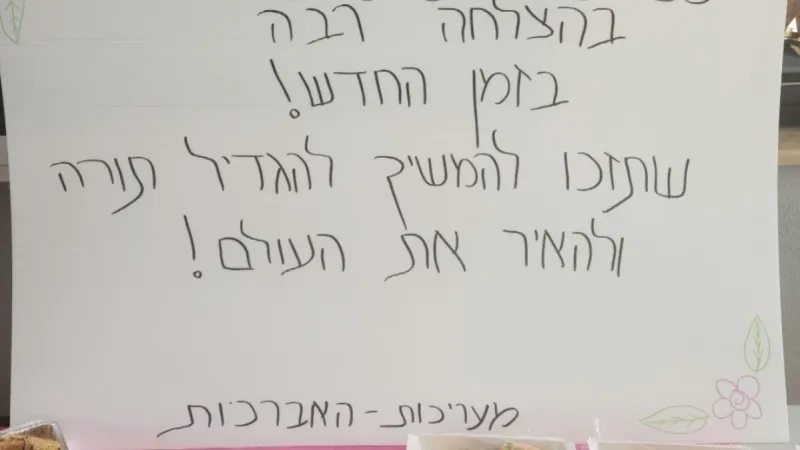 בהצלחה רבה
בזמן החדש!
שתזכו להמשיך להגדיל תורה
ולהאיר את העולם!
מעריכות - האברכות